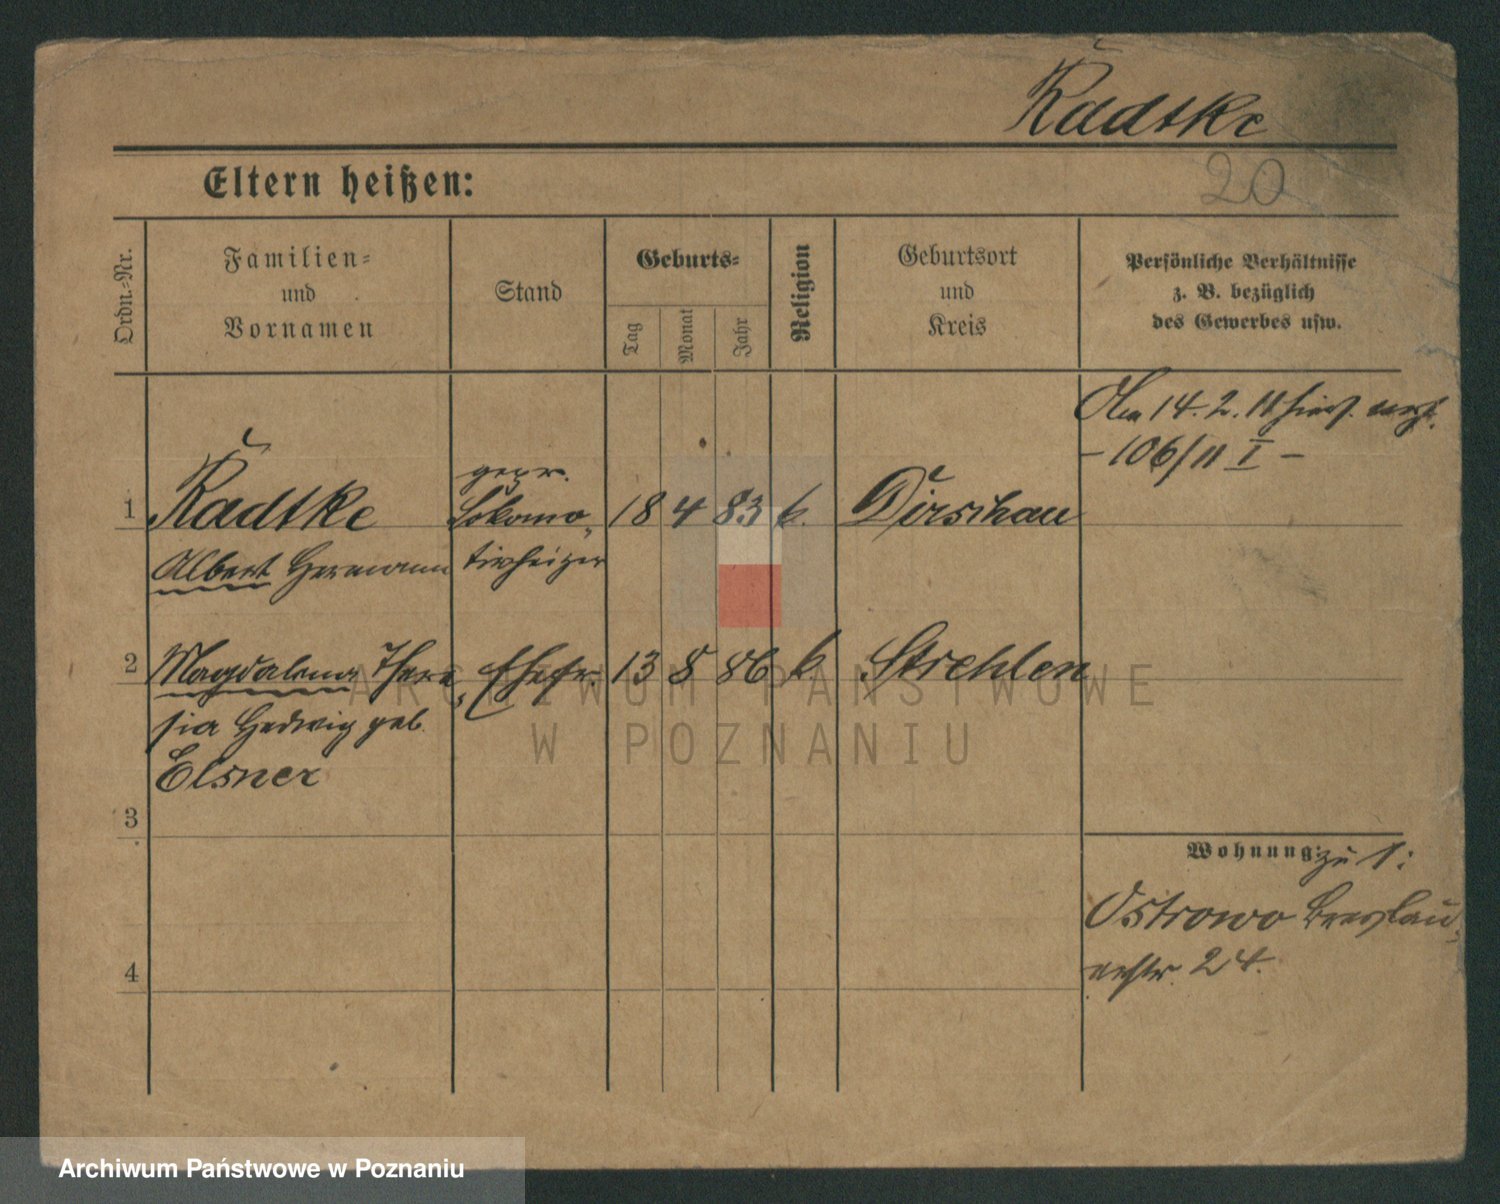 Radtke
Eltern heißen:
20
Ordn.-Nr.
Familien-
und
Vornamen
Stand
Geburts-
Tag
Monat
Jahr
Religion
Geburtsort
und
Kreis
Persönliche Verhältnisse
z. B. bezüglich
des Gewerbes usw.
Am 14. 2. 11
- 106/11 I -
1
Radtke
gepr.
Lokomo-
18
4
83
k.
Dirschau
Albert Hermann
tivheizer
2
Magdalena There-
Ehefr.
13
8
86
k
Strehlen
sia Hedwig geb.
Elsner
3
4
Wohnung: zu 1:
Ostrowo Breslau-
erstr. 24.
ARCHIWUM PAŃSTWOWE
W POZNANIU
Archiwum Państwowe w Poznaniu